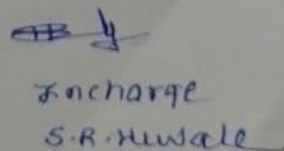 Incharge
S.R.Hewale